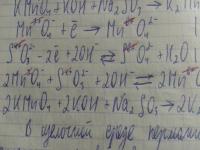 KMnO₄ + KOH + Na₂SO₃ → K₂M
MnO₄⁻ + ē → MnO₄²⁻
SO₃²⁻ - 2ē + 2OH⁻ ⇄ SO₄²⁻ + H₂O
2MnO₄⁻ + SO₃²⁻ + 2OH⁻ ⇄ 2Mn
2KMnO₄ + 2KOH + Na₂SO₃ → 2K
в щелочной среде перман